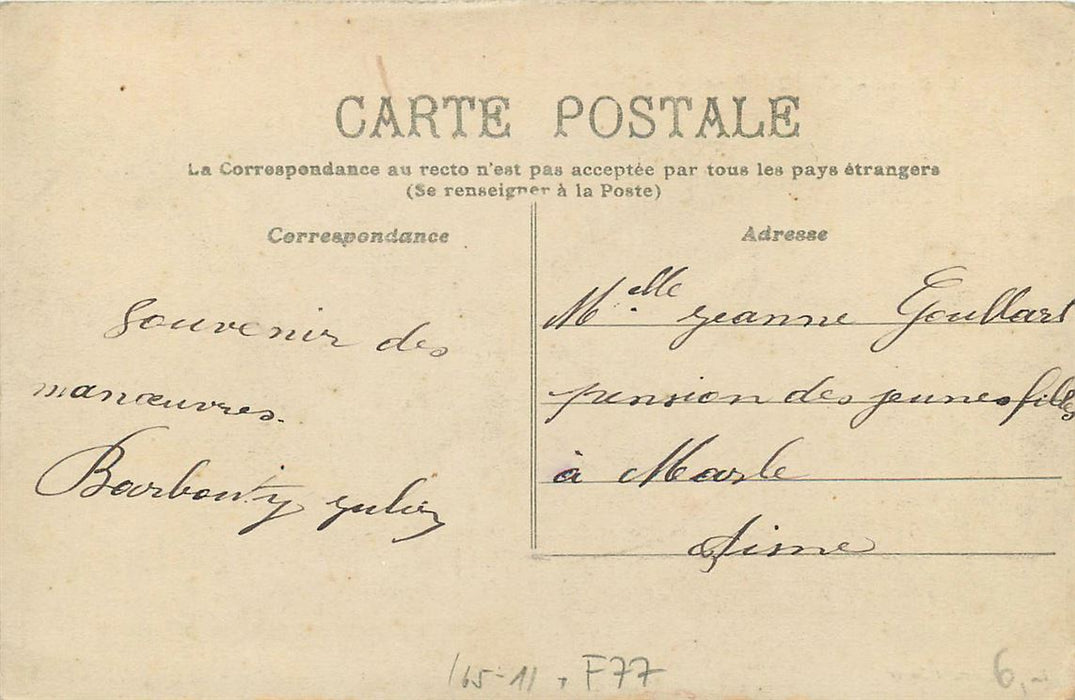 CARTE POSTALE
La Correspondance au recto n'est pas acceptée par tous les pays étrangers
(Se renseigner à la Poste)
Correspondance
souvenir des
manœuvres.
Adresse
Melle Jeanne
pension des jeunes filles
à Marle
Aisne
165-11, F77
6,-